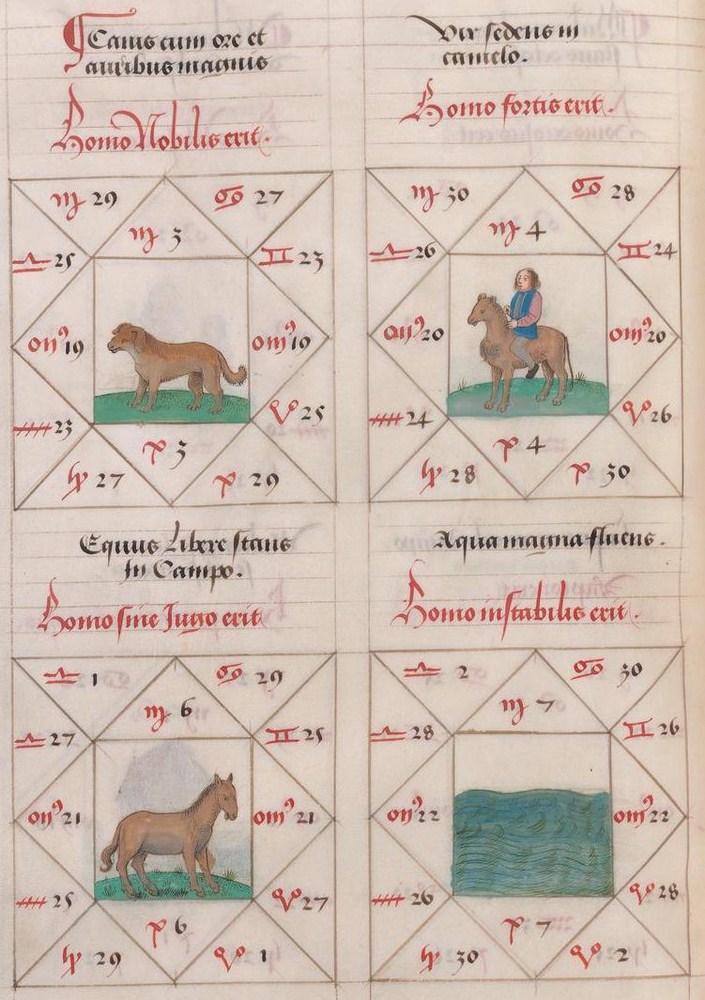 ¶ Canis cum ore et
auribus magnis
Homo Nobilis erit.
♍ 29
♋ 27
♍ 3
♎ 25
♊ 23
om⁹ 19
om⁹ 19
♐ 23
♈ 25
♓ 3
♑ 27
♓ 29
Vir sedens in
camelo.
Homo fortis erit.
♍ 30
♋ 28
♍ 4
♎ 26
♊ 24
om⁹ 20
om⁹ 20
♐ 24
♈ 26
♓ 4
♑ 28
♓ 30
Equus Libere stans
In Campo.
Homo sine Iugo erit
♎ 1
♋ 29
♍ 6
♎ 27
♊ 25
om⁹ 21
om⁹ 21
♐ 25
♈ 27
♓ 6
♑ 29
♈ 1
Aqua magna fluens.
Homo instabilis erit.
♎ 2
♋ 30
♍ 7
♎ 28
♊ 26
om⁹ 22
om⁹ 22
♐ 26
♈ 28
♓ 7
♑ 30
♈ 2